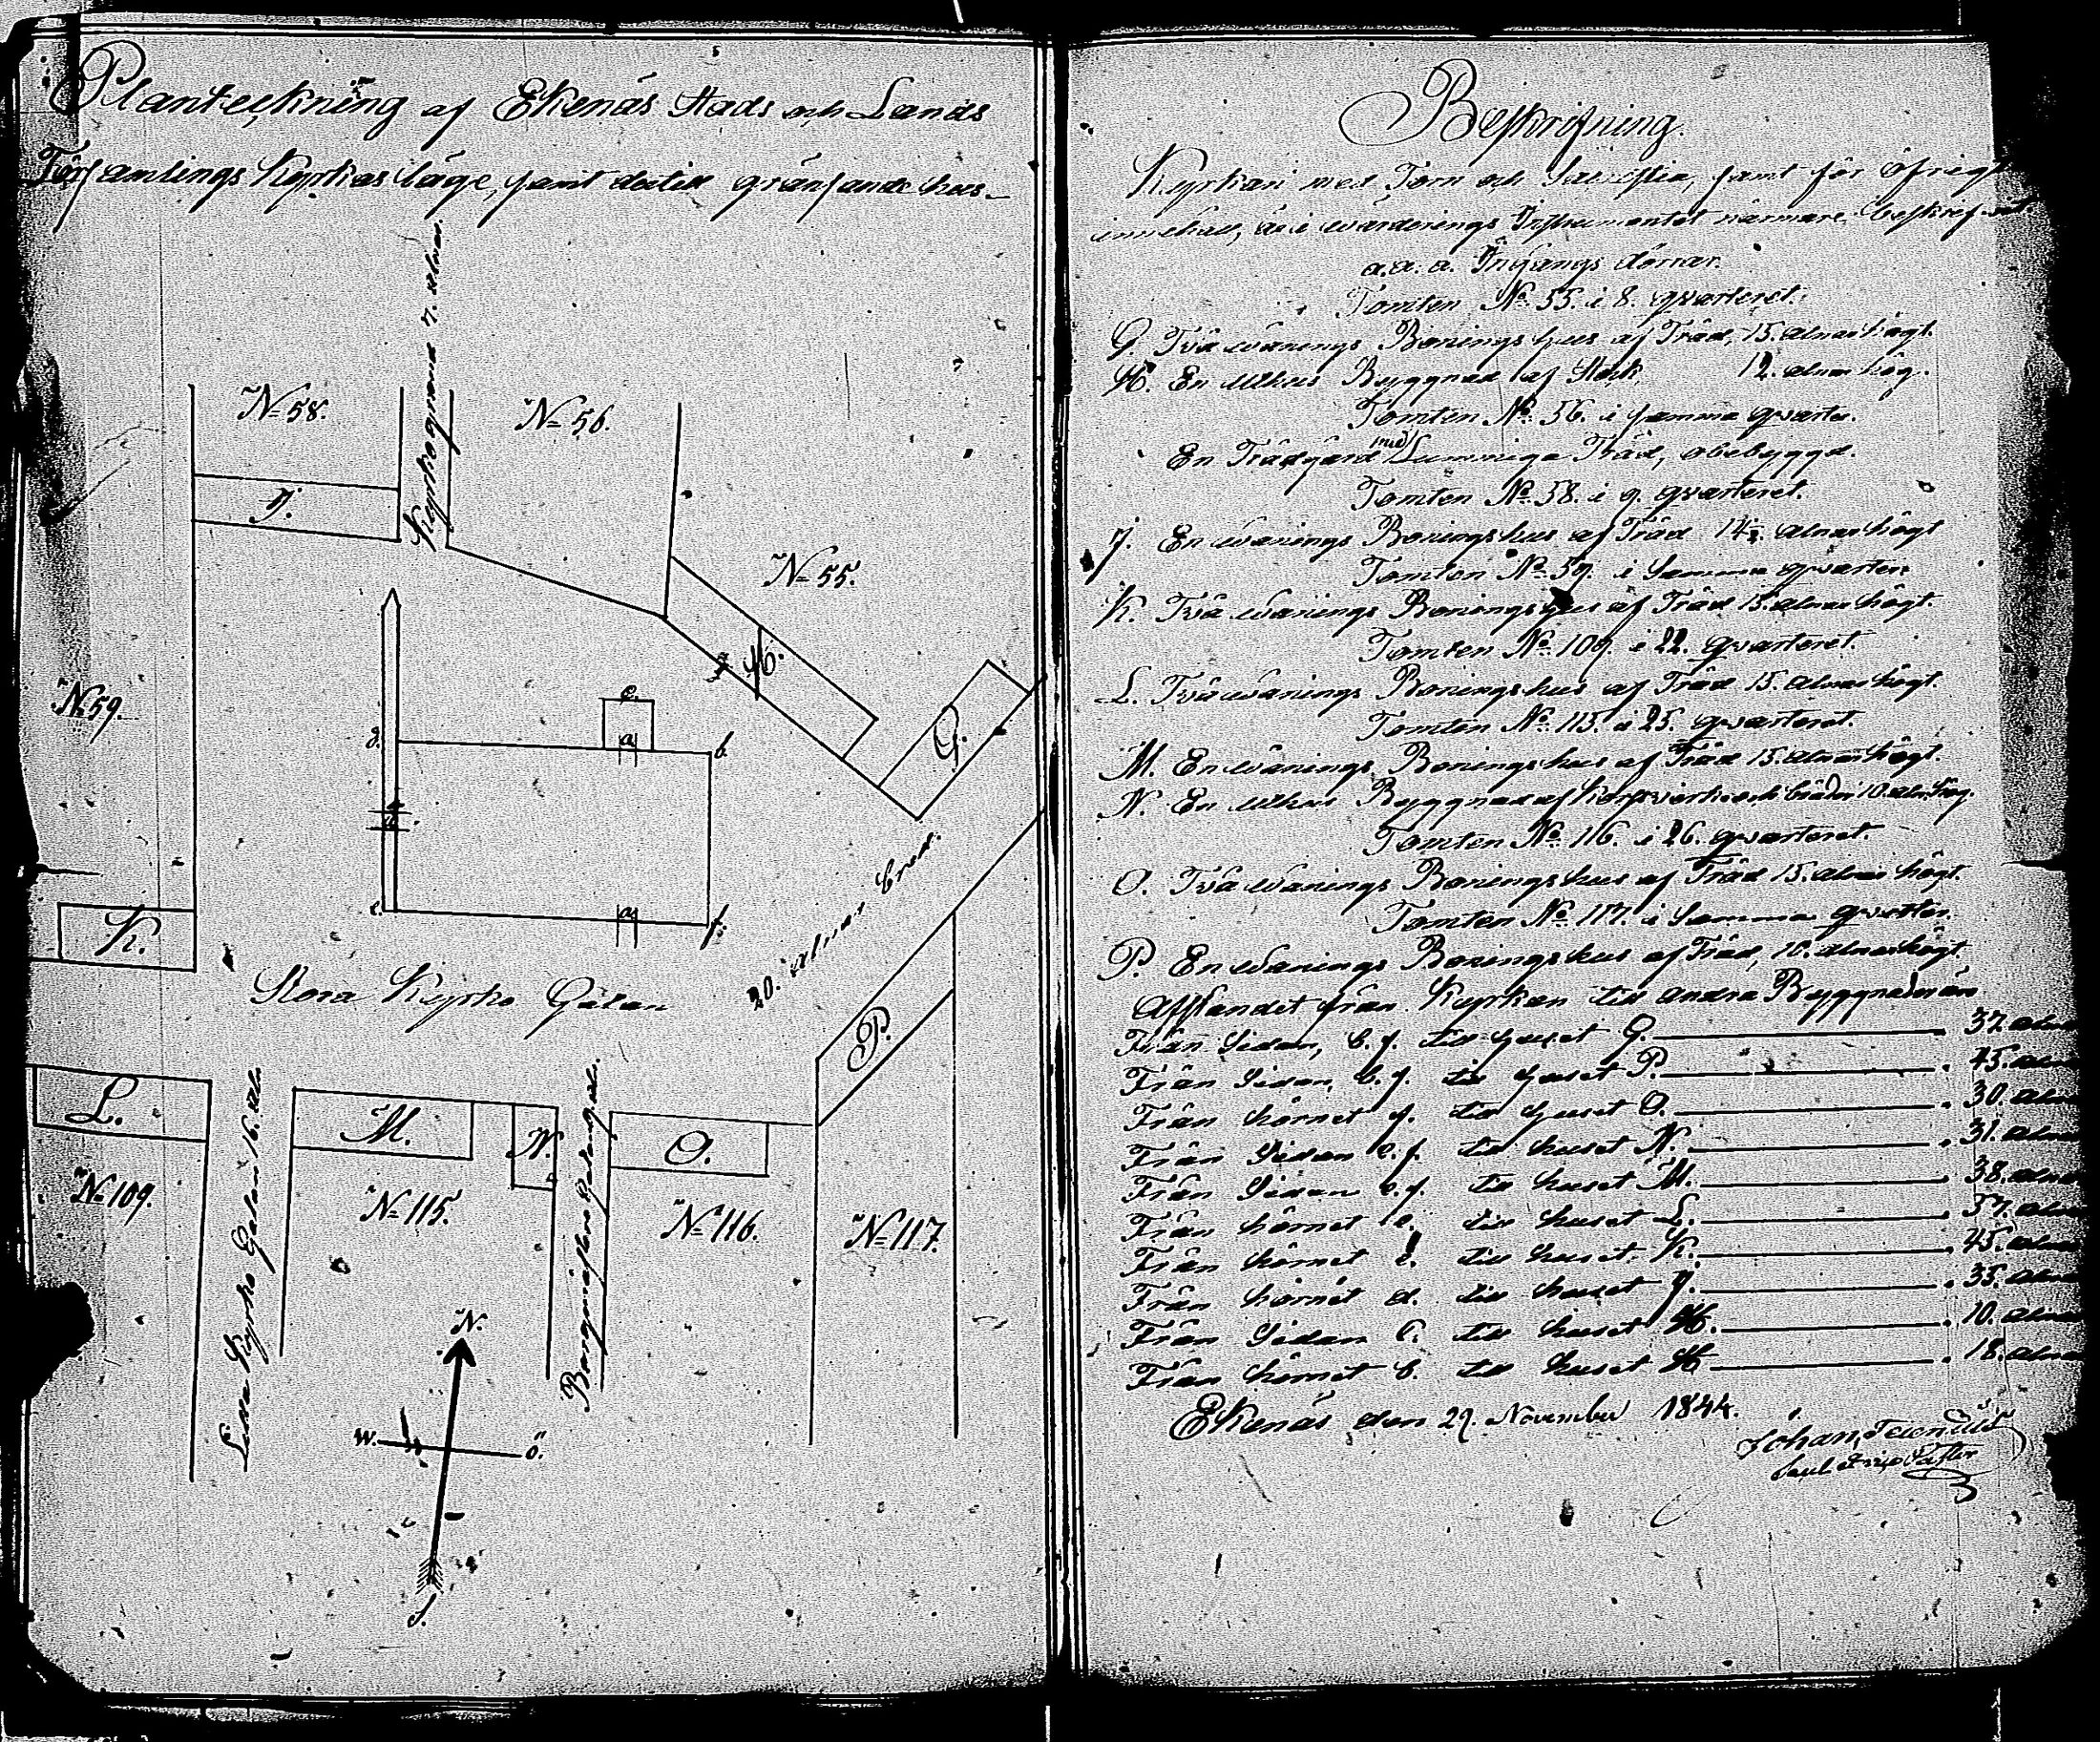 Planteckning af Ekenäs Stads och Lands
Församlings Kyrkas läge, samt dertill gränsande hus.
Kyrkogränd 7. alnar.
N=58.
N=56.
J.
N=55.
H.
N=59.
c.
d.
a
b.
G.
a.
e.
a
f.
20. alnar bred.
K.
Stora Kyrko Gatan
P.
L.
M.
N.
O.
N=109.
N=115.
N=116.
N=117.
Lilla Kyrko Gatan 16. al.
Borgmästare
N.
W.
Ö.
S.
Beskrifning.
Kyrkan med Torn och Sacristia, samt för öfrigt
innehåll, är i wärderings Instrumentet närmare beskrifvet
a. a. a. Ingångs dörrar.
Tomten No 55. i 8. qvarteret.
G. Två wånings Boningshus af Träd, 15. alnar högt.
H. En uthus Byggnad af Stock, 12. alnar hög.
Tomten No 56. i samma qvarter.
En Trädgård med Lummiga Träd, obebyggd.
Tomten No 58. i 9. qvarteret.
J. En wånings Boningshus af Träd 14. alnar högt
Tomten No 59. i Samma qvarter.
K. Två wånings Boningshus af Träd 15. alnar högt.
Tomten No 109. i 22. qvarteret.
L. Två wånings Boningshus af Träd 15. alnar högt.
Tomten No 115. i 25. qvarteret.
M. En wånings Boningshus af Träd 15. alnar högt.
N. En uthus Byggnad af Korsvirke och bräder 10. aln. hög.
Tomten No 116. i 26. qvarteret.
O. Två wånings Boningshus af Träd 15. alnar högt.
Tomten No 117. i Samma qvarter.
P. En wånings Boningshus af Träd, 10. alnar högt.
Afståndet från Kyrkan till andra Byggnader är
Från Sidan, b. f. till huset G. 37. aln
Från Sidan, b. f. till huset P. 45. aln
Från hörnet f. till huset O. 30. aln
Från Sidan e. f. till huset N. 31. aln
Från Sidan e. f. till huset M. 38. aln
Från hörnet e. till huset L. 57. aln
Från hörnet e. till huset K. 45. aln
Från hörnet d. till huset J. 35. aln
Från Sidan c. till huset H. 10. aln
Från hörnet b. till huset H 18. aln
Ekenäs den 29. November 1844.
Johan